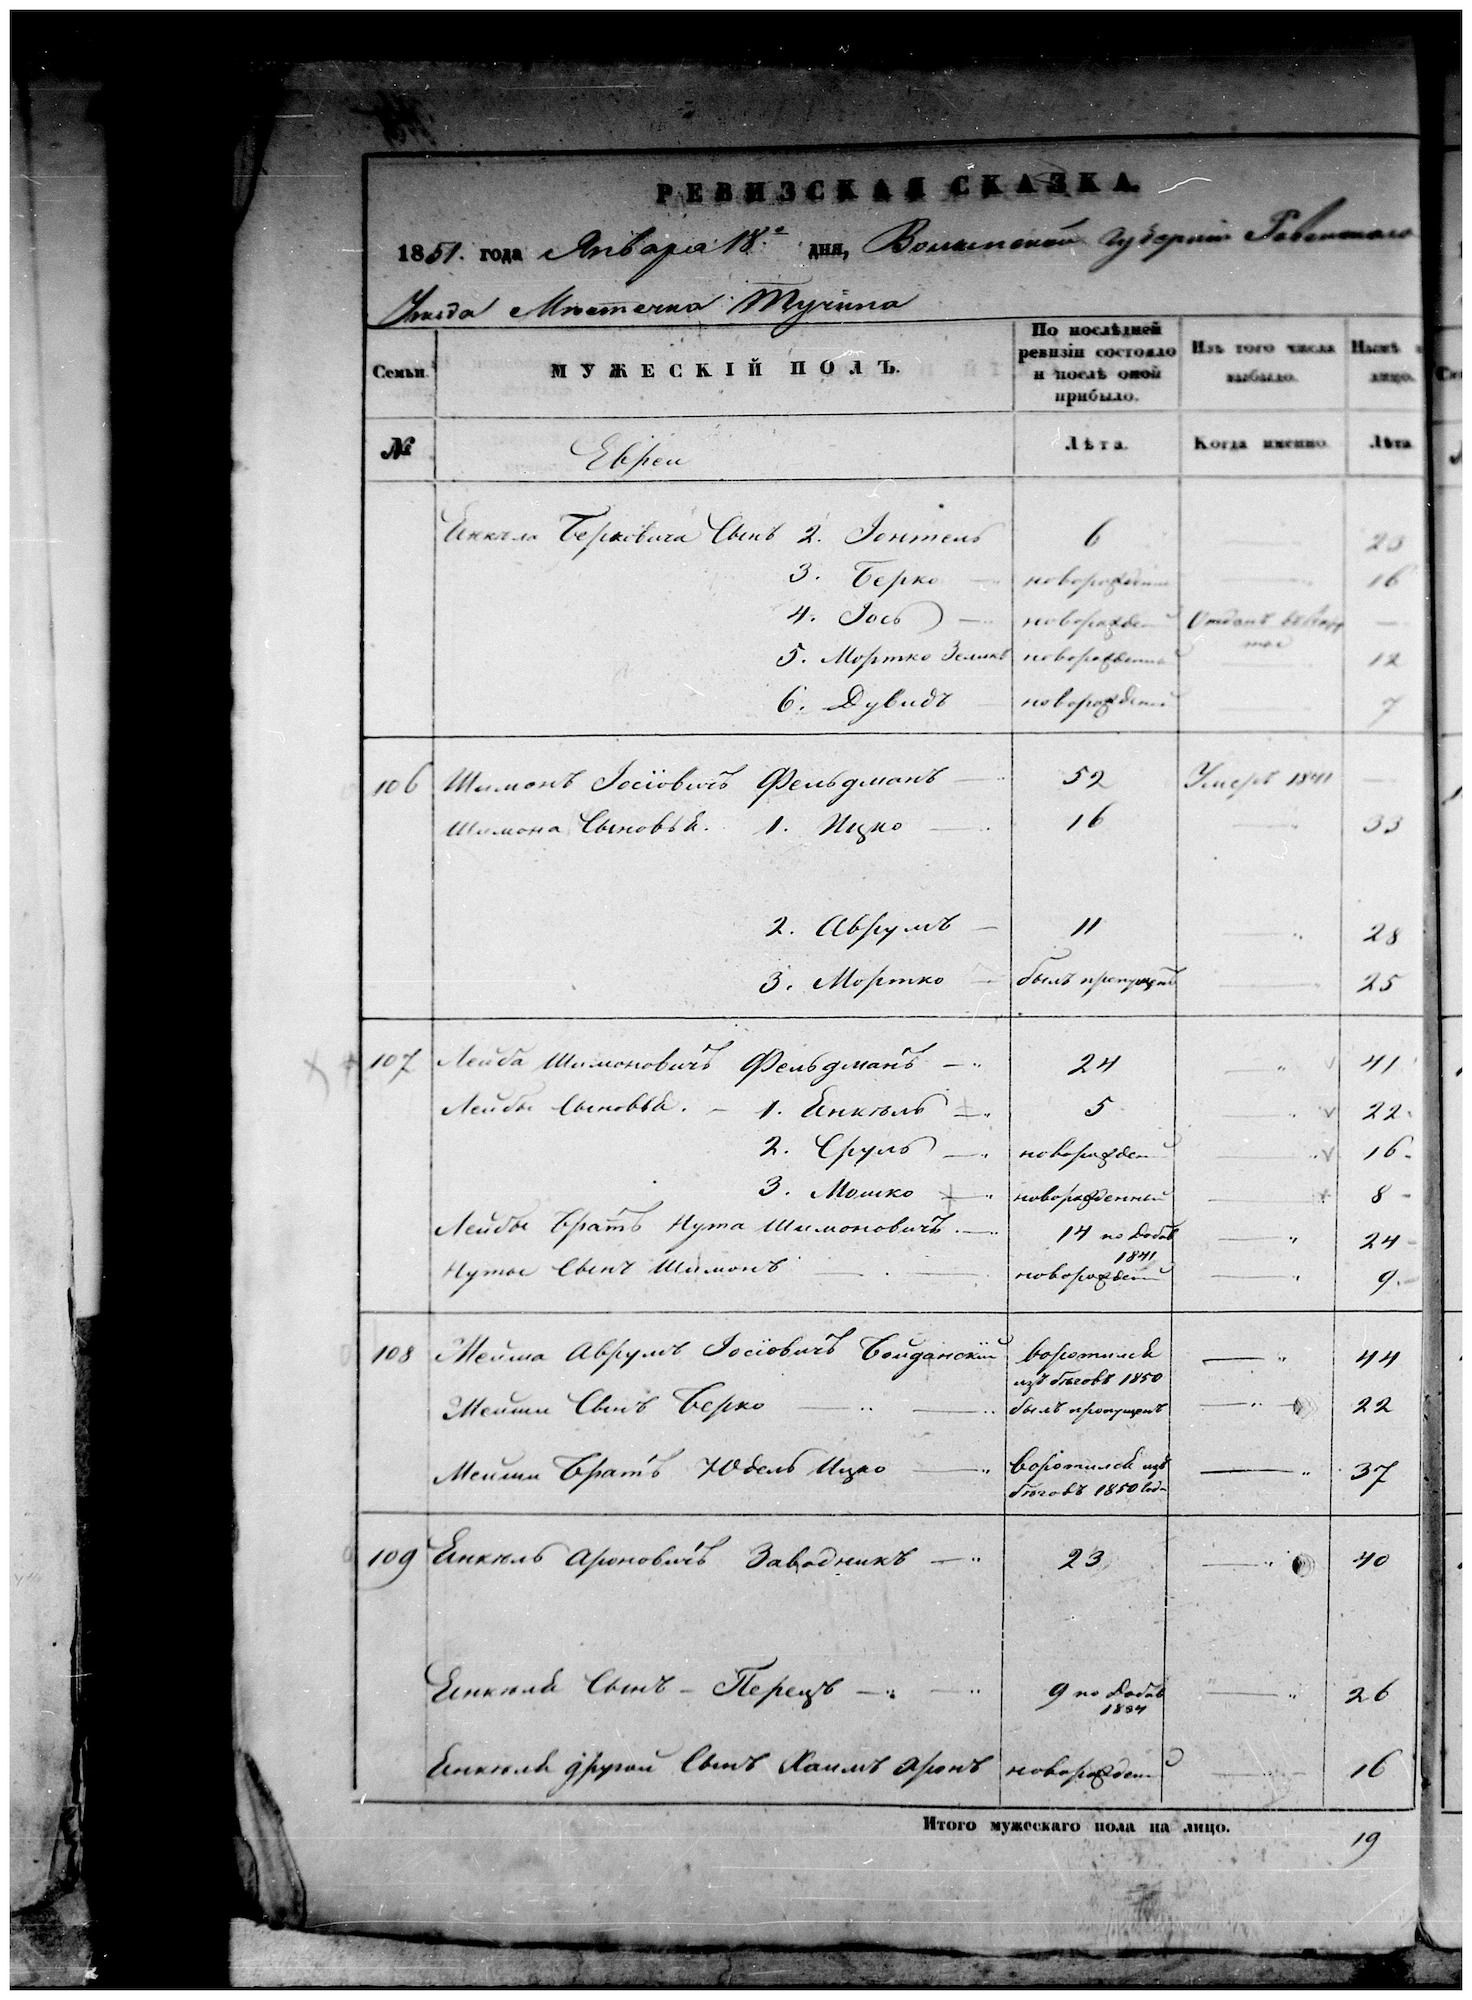 РЕВИЗСКАЯ СКАЗКА.
1851. года Января 18.го дня, Волынской Губерніи Ровенского
Уѣзда Мѣстечка Тучина
Семьи. МУЖЕСКІЙ ПОЛЪ. По послѣдней ревизіи состояло и послѣ оной прибыло. Изъ того числа выбыло. Нынѣ лицо.
№ Евреи Лѣта. Когда именно. Лѣта
Янкеля Берковича Сынъ 2. Іонтель 6 23
3. Берко новорожденный 16
4. Іось новорожден Отданъ
5. Мортко Зелик новорожденный 12
6. Дувидъ новорожденный 7
106 Шимонъ Іосіовичъ Фельдманъ 52 Умеръ 1841
Шимона Сыновья. 1. Ицко 16 33
2. Аврумъ 11 28
3. Мортко былъ пропущенъ 25
107 Лейба Шимоновичъ Фельдманъ 24 41
Лейбы Сыновья. 1. Янкель 5 22
2. Сруль новорожден 16
3. Мошко новорожденный 8
Лейбы Братъ Нута Шимоновичъ 14 по Добав 24
1841
Нуты Сынъ Шимонъ новорожден 9
108 Мейша Аврумъ Іосіовичъ воротился 44
изъ бѣговъ 1850
Мейши Сынъ Берко былъ пропущенъ 22
Мейши Братъ Юдель Ицко воротился изъ 37
бѣговъ 1850 года
109 Янкель Ароновичъ Заводникъ 23 40
Янкеля Сынъ Перецъ 9 по Добав 26
1834
Янкеля другой Сынъ Хаимъ Аронъ новорожден 16
Итого мужескаго пола на лицо.
19